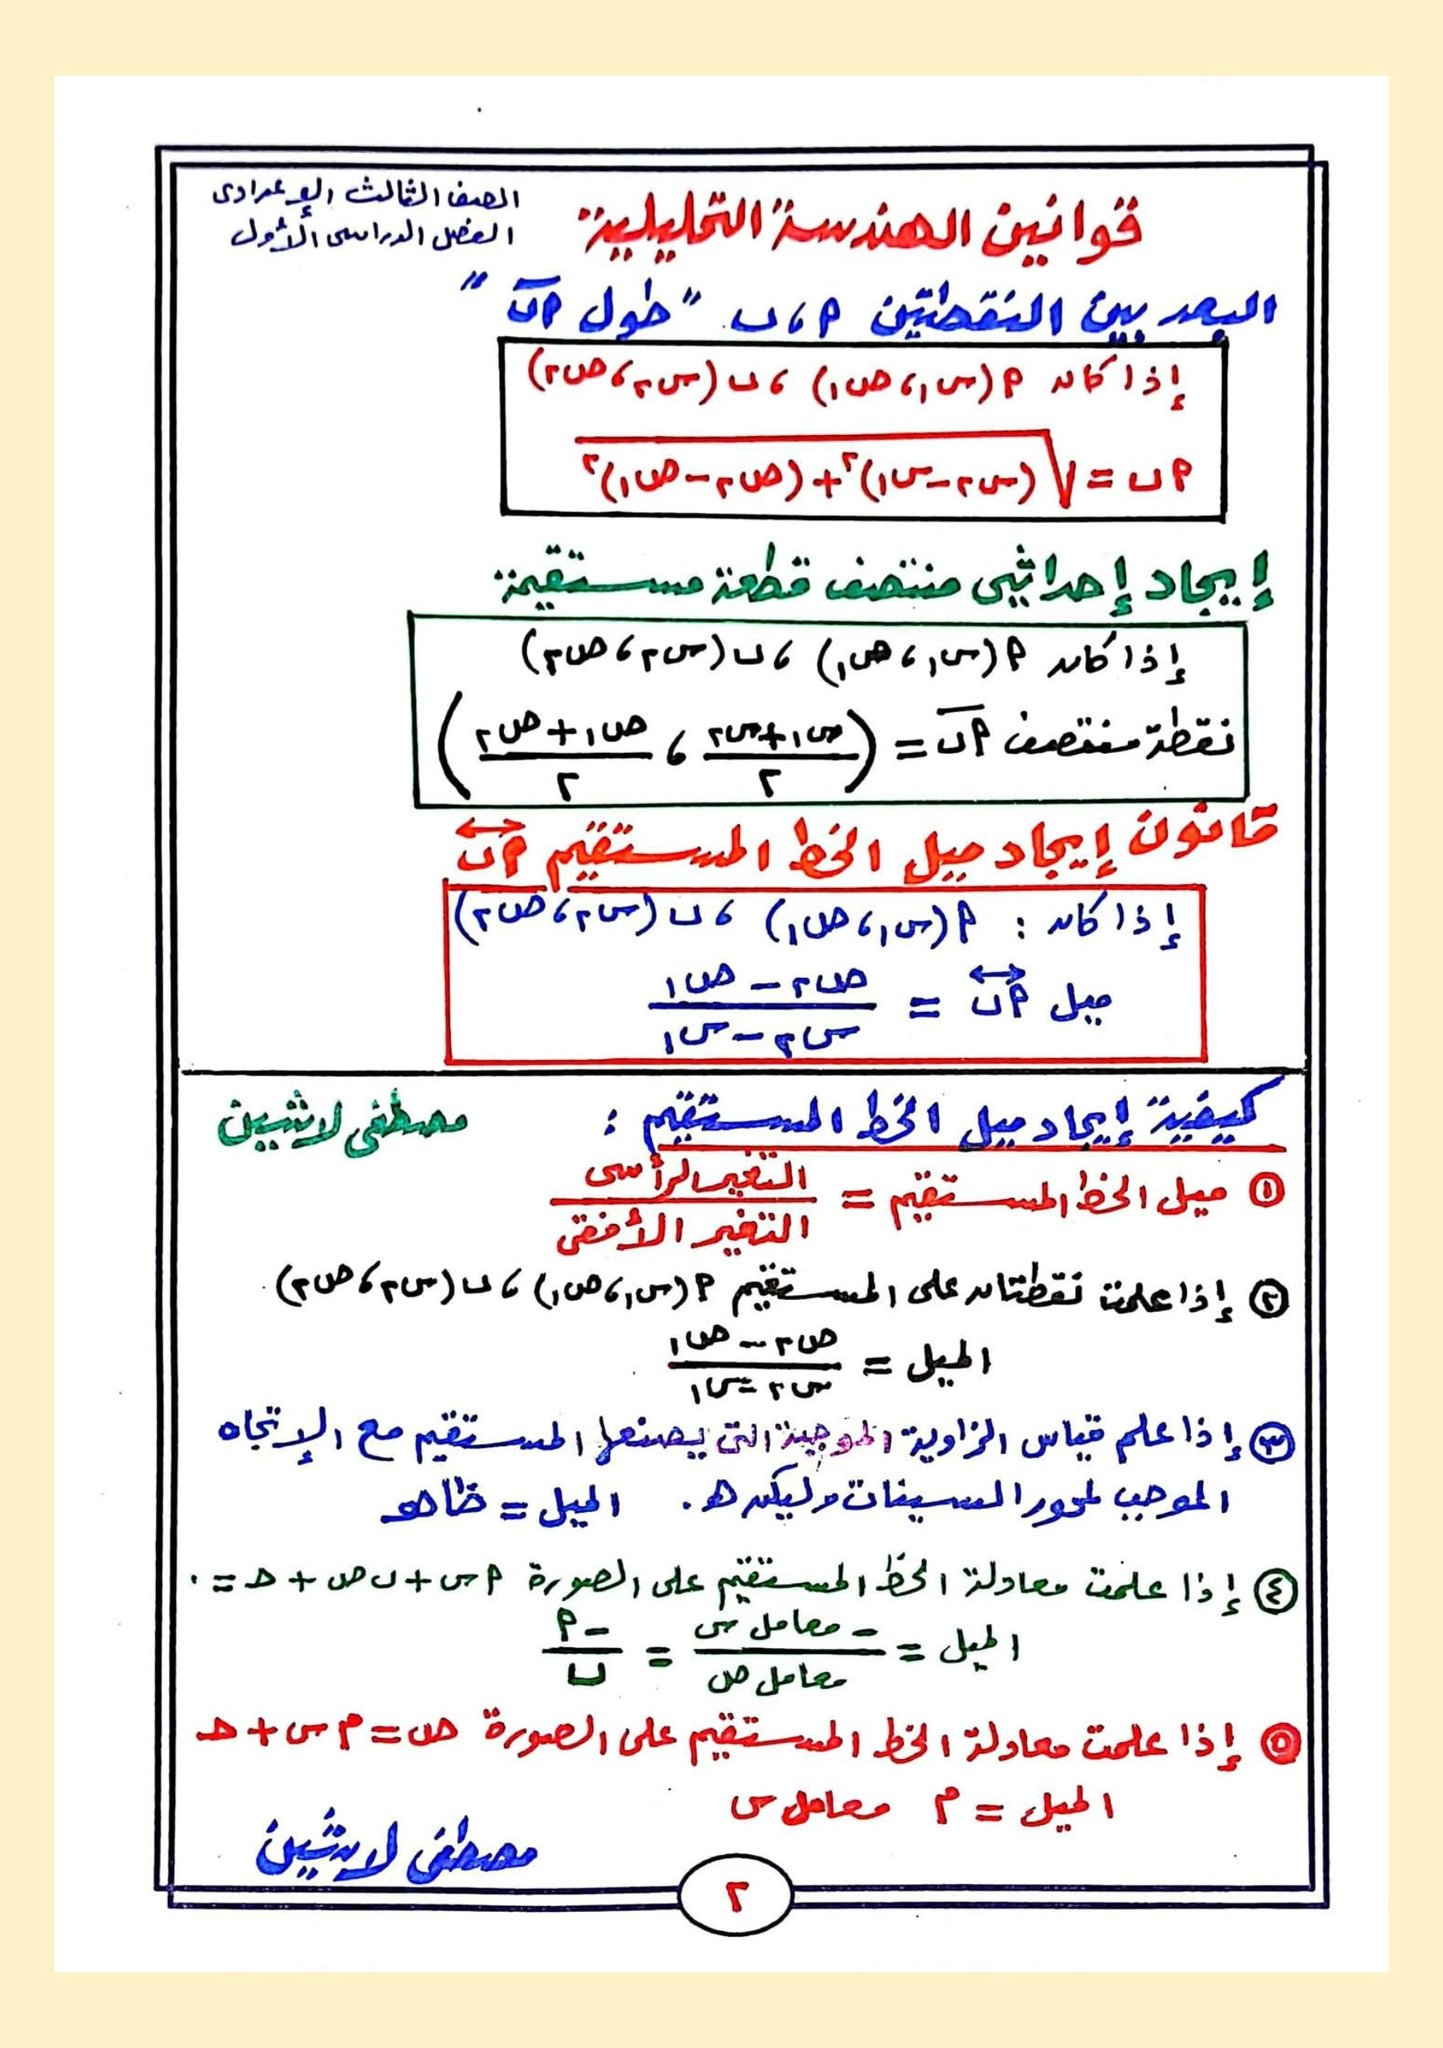 قوانين الهندسة التحليلية
الصف الثالث الإعدادى
الفصل الدراسى الأول
البعد بين النقطتين م ، ب " طول م ب "
إذا كان م (س١ ، ص١) ، ب (س٢ ، ص٢)
م ب = √(س٢ – س١)٢ + (ص٢ – ص١)٢
إيجاد إحداثيى منتصف قطعة مستقيمة
إذا كان م (س١ ، ص١) ، ب (س٢ ، ص٢)
نقطة منتصف م ب = ( س١ + س٢ / ٢ ، ص١ + ص٢ / ٢ )
قانون إيجاد ميل الخط المستقيم م ب
إذا كان : م (س١ ، ص١) ، ب (س٢ ، ص٢)
ميل م ب = ص٢ – ص١ / س٢ – س١
كيفية إيجاد ميل الخط المستقيم :
مصطفى لاشين
١ ميل الخط المستقيم = التغير الرأسى / التغير الأفقى
٢ إذا علمت نقطتان على المستقيم م (س١ ، ص١) ، ب (س٢ ، ص٢)
الميل = ص٢ – ص١ / س٢ – س١
٣ إذا علم قياس الزاوية الموجبة التى يصنعها المستقيم مع الإتجاه
الموجب لمحور السينات وليكن هـ . الميل = ظا هـ
٤ إذا علمت معادلة الخط المستقيم على الصورة م س + ب ص + حـ = ٠
الميل = – معامل س / معامل ص = – م / ب
٥ إذا علمت معادلة الخط المستقيم على الصورة ص = م س + حـ
الميل = م معامل س
مصطفى لاشين
٢